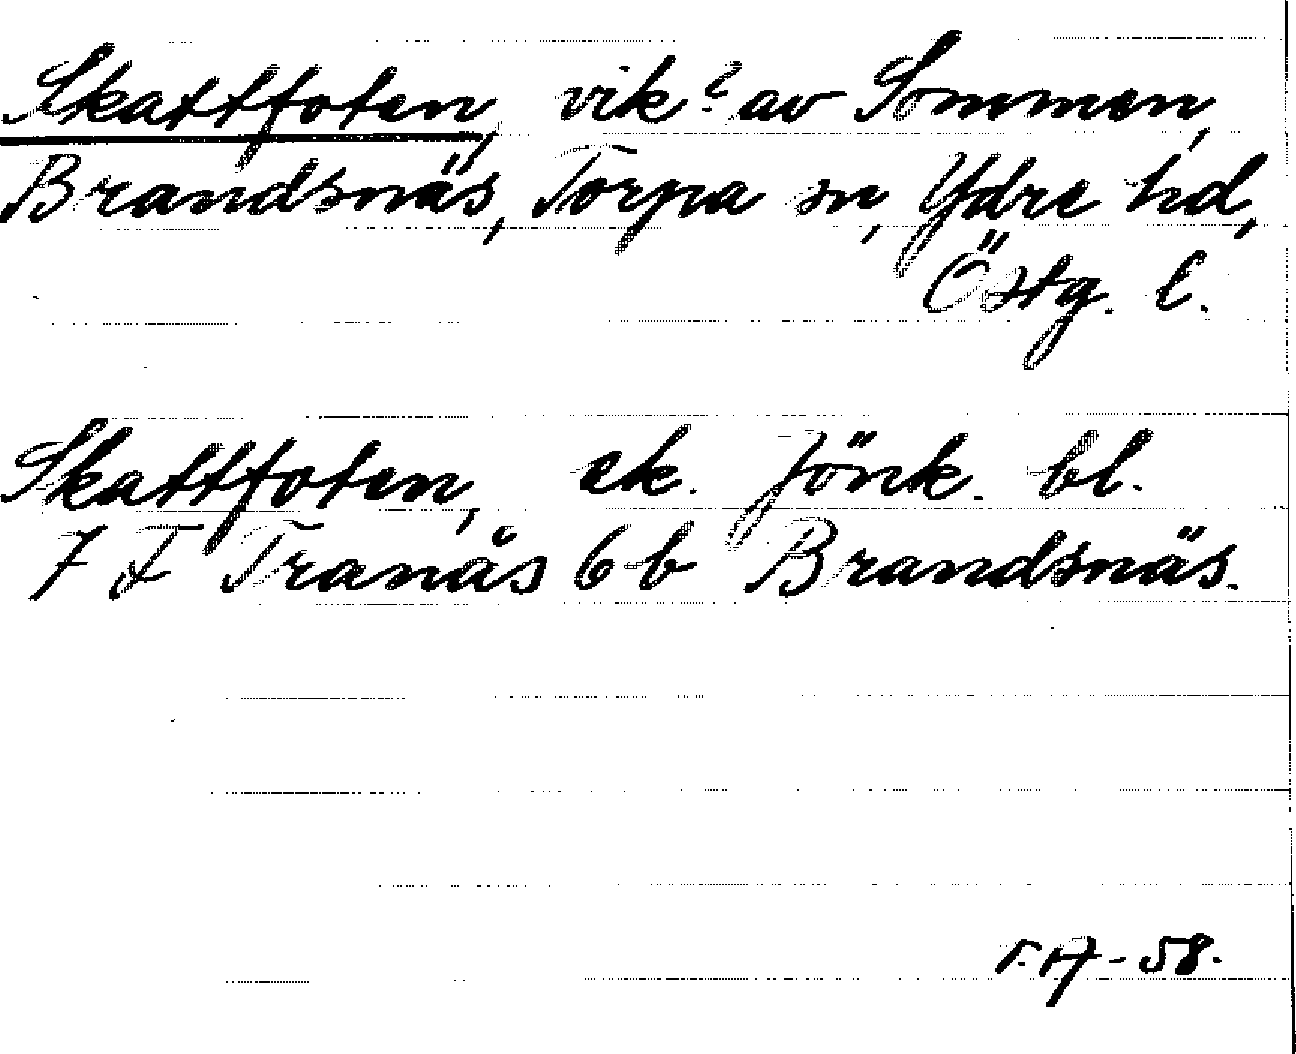 Skattfoten, vik? av Sommen,
Brandsnäs, Torpa sn, Ydre hd,
Östg. l.
Skattfoten, ek. Jönk. bl.
7 F Tranås 6 b Brandsnäs.
-58.